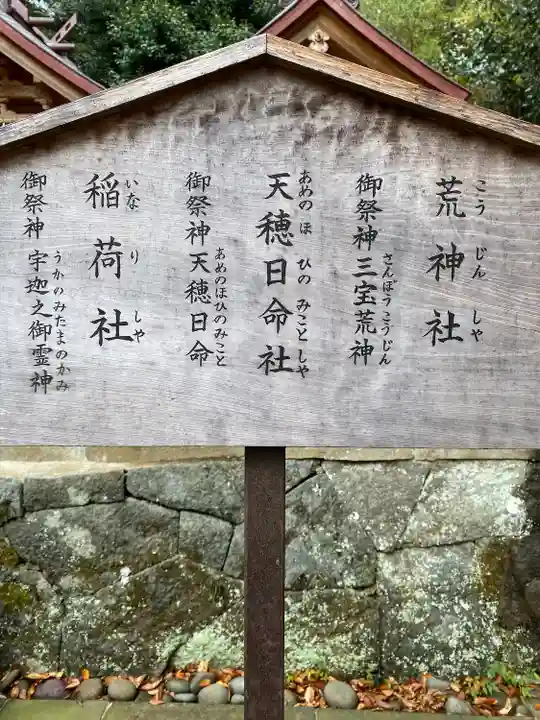 荒神社
こうじんしゃ
御祭神三宝荒神
さんぽうこうじん
天穂日命社
あめのほひのみことしゃ
御祭神天穂日命
あめのほひのみこと
稲荷社
いなりしゃ
御祭神 宇迦之御霊神
うかのみたまのかみ